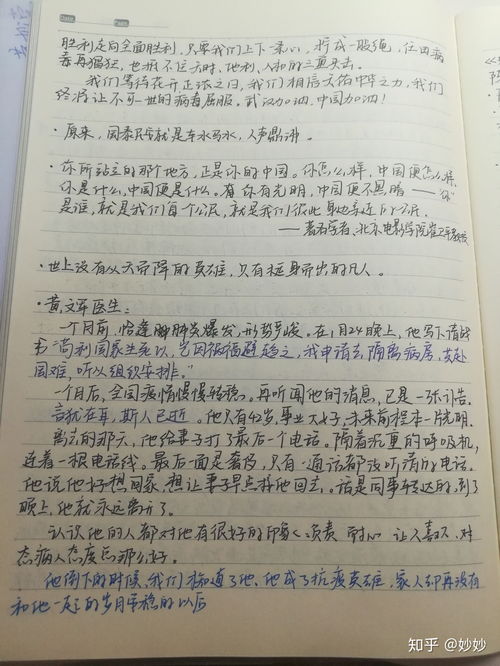 Date.
Page.
胜利走向全面胜利,只要我们上下一条心,拧成一股绳,任由病
毒再猖狂,也抵不过天时、地利、人和的三重夹击。
我们等待花开正浓之日,我们相信天佑中华之力,我们
终将让不可一世的病毒屈服。武汉加油,中国加油!
·原来,国泰民安就是车水马水,人声鼎沸。
·你所站立的那个地方,正是你的中国。你怎么样,中国便怎么样,
你是什么,中国便是什么。有你有光明,中国便不黑暗——“你”
是谁,就是我们每个公民,就是我们彼此身边亲近的
——著名学者、北京电影学院崔卫平教授
·世上没有从天而降的英雄,只有挺身而出的凡人。
·黄文军医生:
一个月前,恰逢肺炎爆发,形势严峻。在1月24晚上,他写下请战
书“苟利国家生死以,岂因祸福避趋之,我申请去隔离病房,共赴
国难,听从组织安排。”
一个月后,全国疫情慢慢转稳。再听闻他的消息,已是一张讣告。
言犹在耳,斯人已逝。他只有42岁,事业大好,未来前程本一片光明。
离去的那天,他给妻子打了最后一个电话。隔着沉重的呼吸机,
连着一根电话线。最后一面是奢侈,只有一通话都没听清的电话。
他说他好想回家,想让妻早点接他回去。话是同事转达的,到了
晚上,他就永远离开了。
认识他的人都对他有很好的印象:负责 耐心 让人喜欢 对
态病人态度总那么好。
他倒下的时候,我们都知道了他,他成了抗疫英雄,家人却再没有
和他一起的岁月安稳的以后
知乎 @妙妙